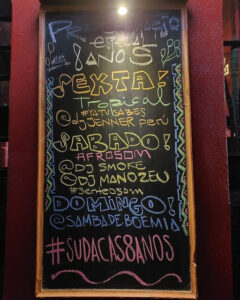 PROGRAMAÇÃO
especial
8 ANOS
SEXTA!
Tropical
#TATVSABES
@DJJENNER Perú
SABADO!
AFROSOM
@DJ SMOKE
@DJ MANOZEU
#SENTEOSOM
DOMINGO!
@SAMBADEBOEMIA
#SUDACAS8ANOS